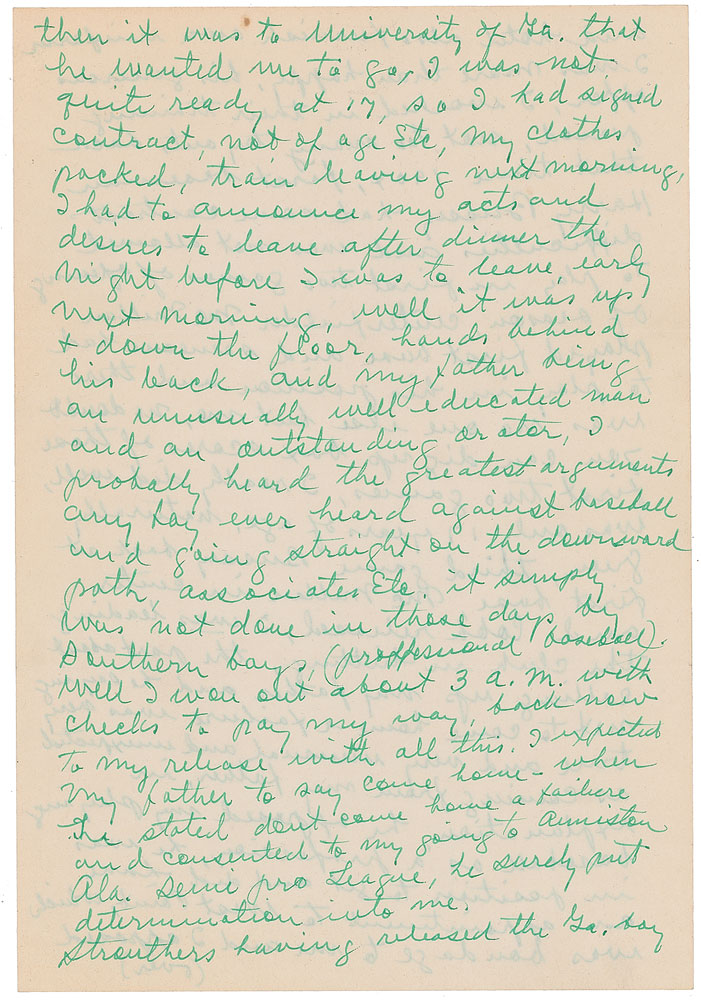 then it was to University of Ga. that
he wanted me to go, I was not
quite ready at 17, so I had signed
contract, not of age Etc, my clothes
packed, train leaving next morning,
I had to announce my acts and
desires to leave after dinner the
night before I was to leave early
next morning, well it was up
& down the floor, hands behind
his back, and my father being
an unusually well educated man
and an outstanding orator, I
probally heard the greatest arguments
any boy ever heard against baseball
and going straight on the downward
path, associates Etc. it simply
was not done in those days by
Southern boys, (proffessional baseball).
Well I won out about 3 a.m. with
checks to pay my way, back now
to my release with all this. I expected
my father to say come home - when
he stated dont come home a failure
and consented to my going to Anniston
Ala. semi pro League, he surely put
determination into me.
Strouthers having released the Ga. boy
(over)